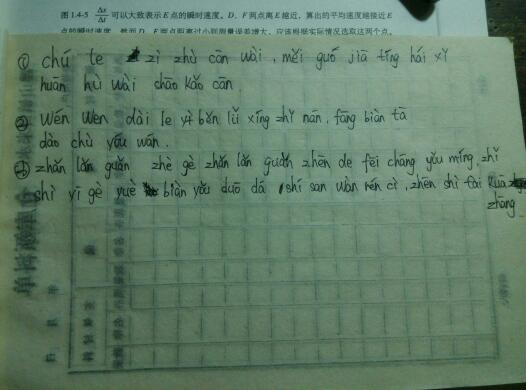 图1.4-5 Δx/Δt 可以大致表示E点的瞬时速度。D、F两点离E越近,算出的平均速度越接近E
点的瞬时速度。然而D、F两点距离过小则测量误差增大,应该根据实际情况选取这两个点。
① chú le zì zhù cān wài , měi guó jiā tíng hái xǐ
huān hù wài chāo kǎo cān
② Wén Wen dài le yì běn lǚ xíng zhǐ nán , fāng biàn tā
dào chù yóu wán .
③ zhǎn lǎn guǎn zhè gè zhǎn lǎn guǎn zhēn de fēi cháng yǒu míng , zhǐ
shì yī gè yuè biàn yǒu duō dá shí san wàn rén cì , zhēn shì tài kuā
zhāng